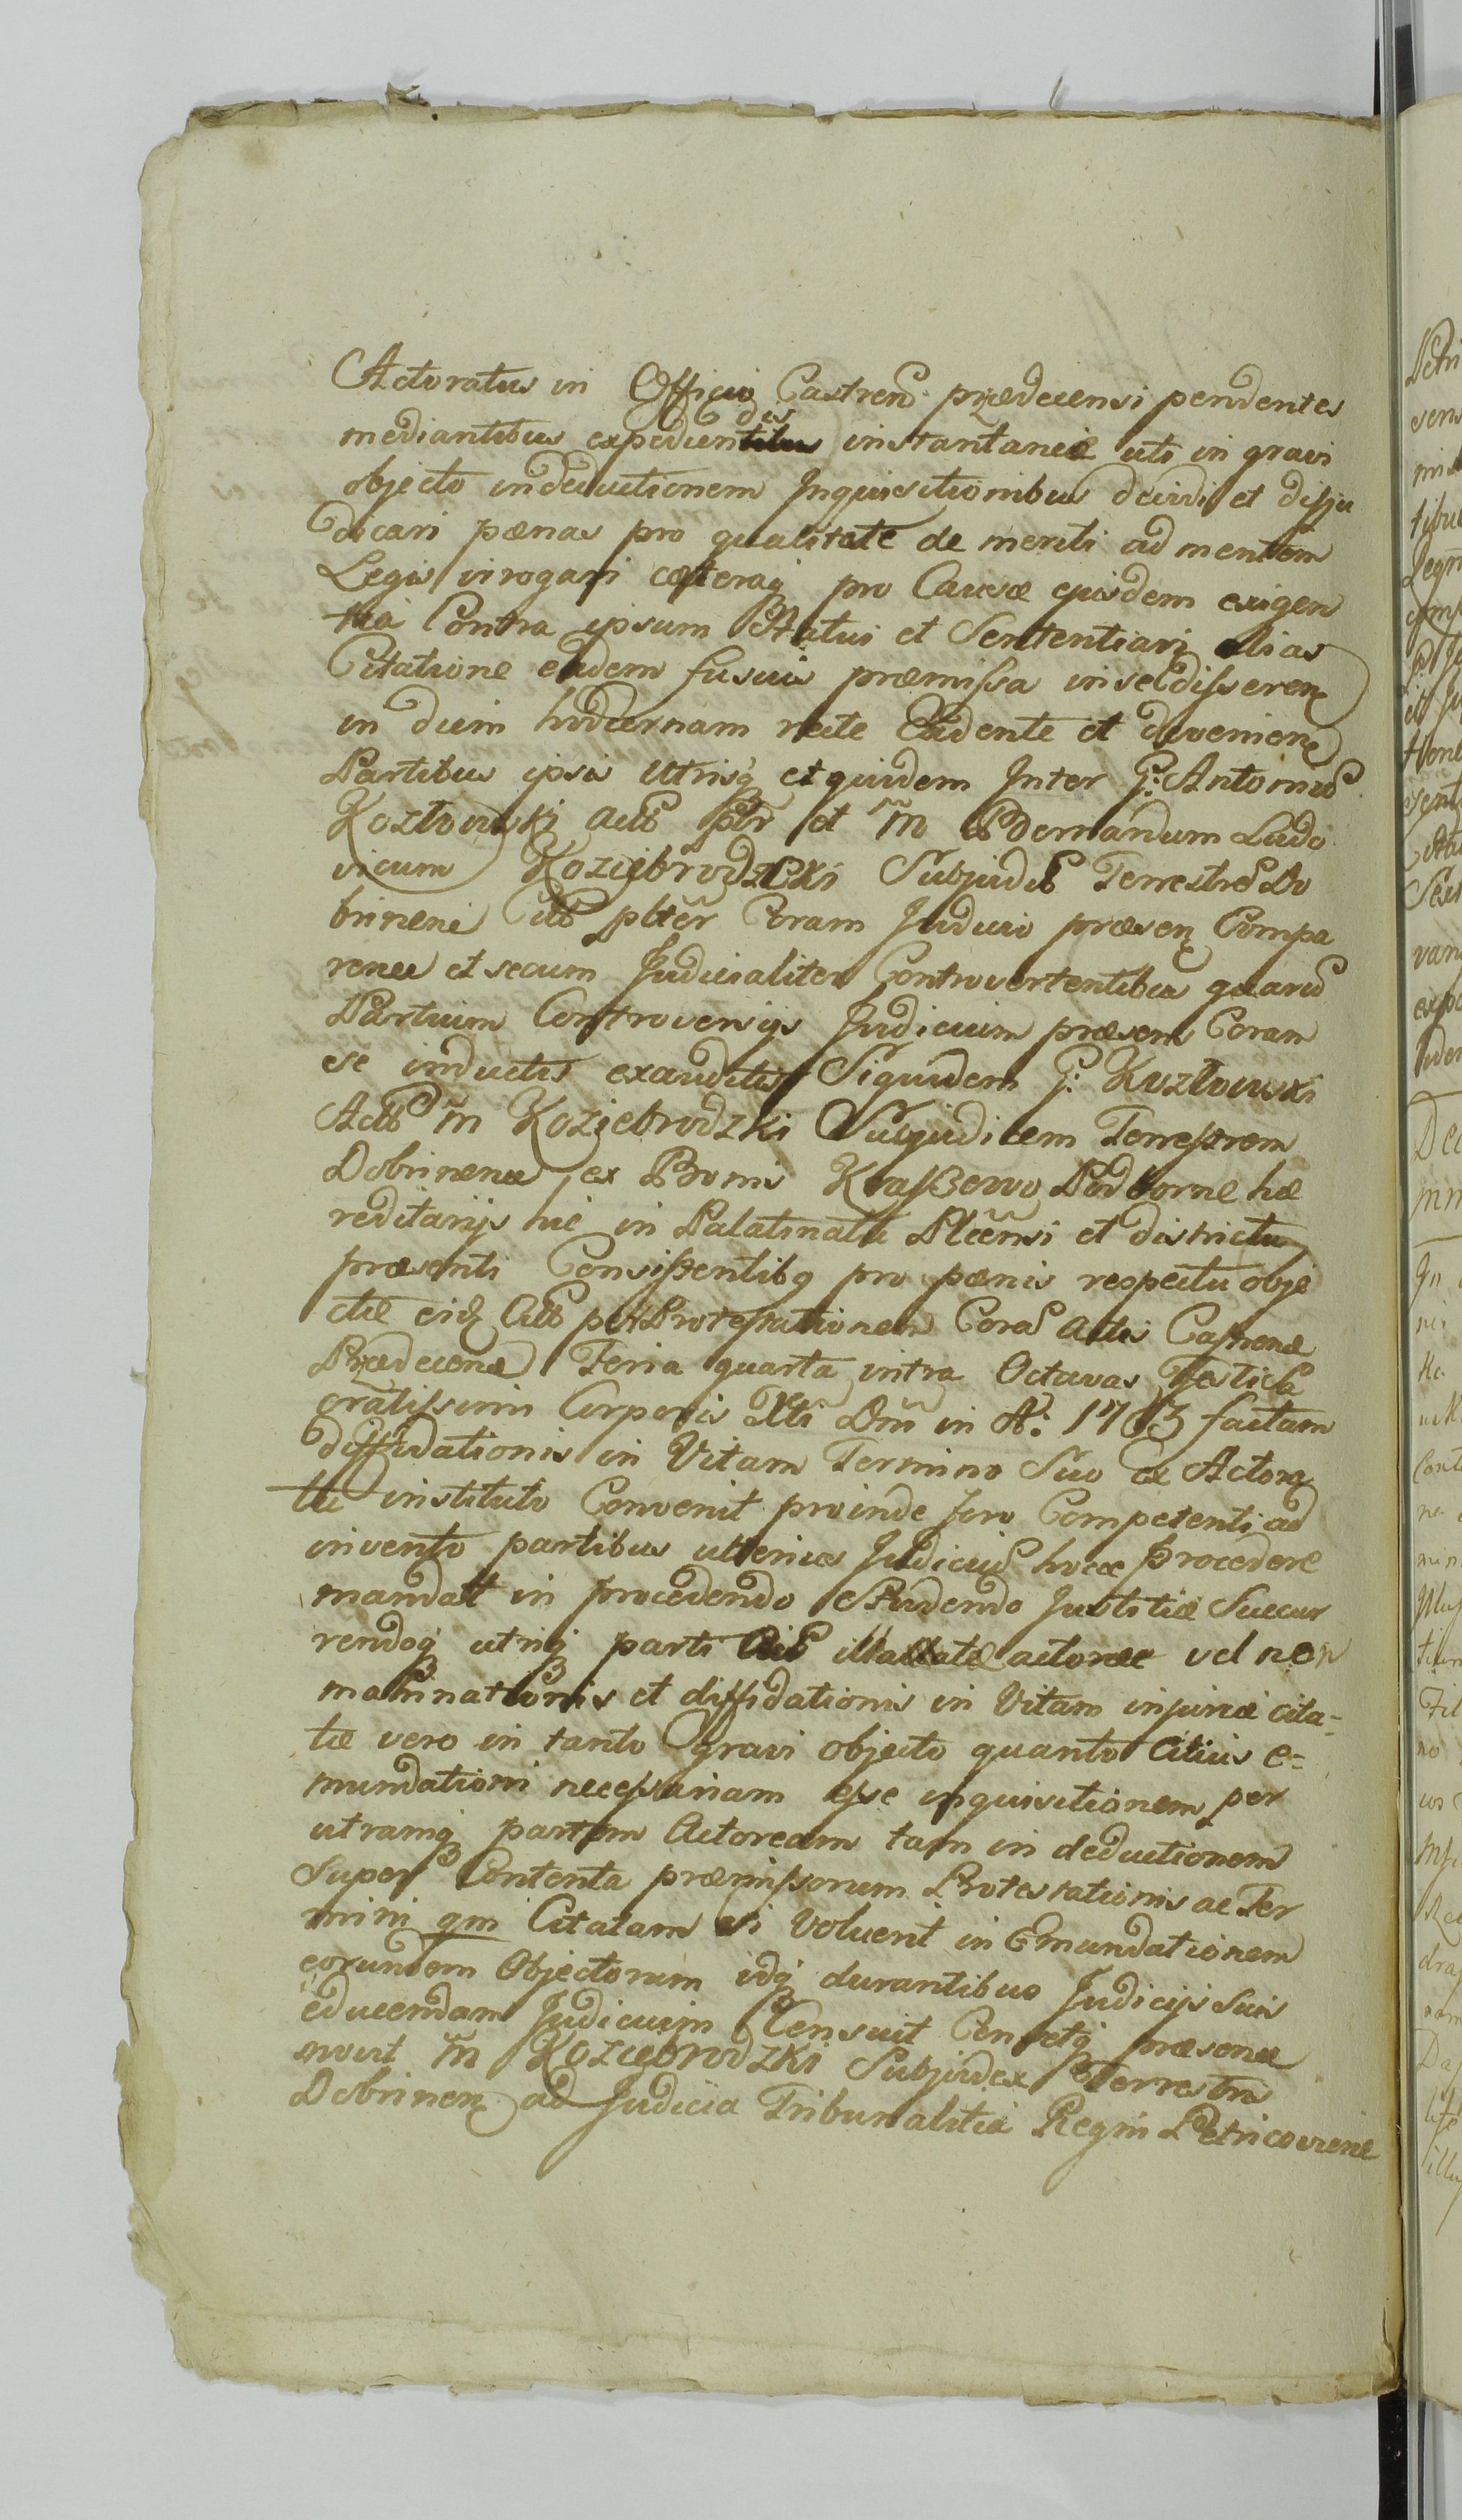 Actoratus in Officio Castren̄ przedecensi pendentes
mediantibus expediendis instantaneæ uti in gravi
objecto in deductionem Inquisitionibus decidi et disju
dicari pænas pro qualitate de meriti ad mentem
Legis irrogari cæteraq pro Causæ ejusdem exigen
tia Contra ipsum Statui et Sententiari alias
Citatione eadem fusius præmissa in se disseren
in diem hodiernam recte Cadente et devenien
Partibus ipsis Utrisq et quidem Inter G: Antonium
Kozłowski Act ptr et M Bernardum Ludo
vicum Koziebrodzki Subjudic Terrestrem Do
brinen Cit ptēr Coram Judicio præsen Compa
ren et secum Judicialiter Controvertentibus quarum
Partium Controversijs Judicium præsens Coram
se inductis exauditis Siquidem G: Kozłowski
Act M Koziebrodzki Subjudicem Terrestrem
Dobrinen ex Bonis Kraszewo Podborne hæ
reditarijs hic in Palatinatu Plōensi et districtu
præsenti Consistentibq pro pænis respectu obje
ctæ eid Act per Protestationem Coram Actis Castren
Przedecen Feria quarta intra Octavas Festi Sa
cratissimi Corporis Xti Dni in A: 1763 factam
diffidationis in Vitam Termino Suo ex Actora
tu instituto Convenit proinde foro Competenti ad
invento partibus ulterius Judicium hocce procedere
mandat in procedendo Studendo Justitiæ Succur
rendoq utriq parti illatæ actoreæ vel non
machinationis et diffidationis in Vitam injuriæ cita=
tæ vero in tanto gravi objecto quanto Citius e=
mundationi necessariam esse inquisitionem per
utramq partem Actoream tam in deductionem
Super Contenta præmissorum Protestationis ac Ter
mini qm Citatam si voluerit in Emundationem
eorundem Objectorum idq durantibus Judicijs suis
educendam Judicium Censuit Censetq præsen
movit M Koziebrodzki Subjudex Terrestris
Dobrinen ad Judicia Tribunalitia Regni Petricovien